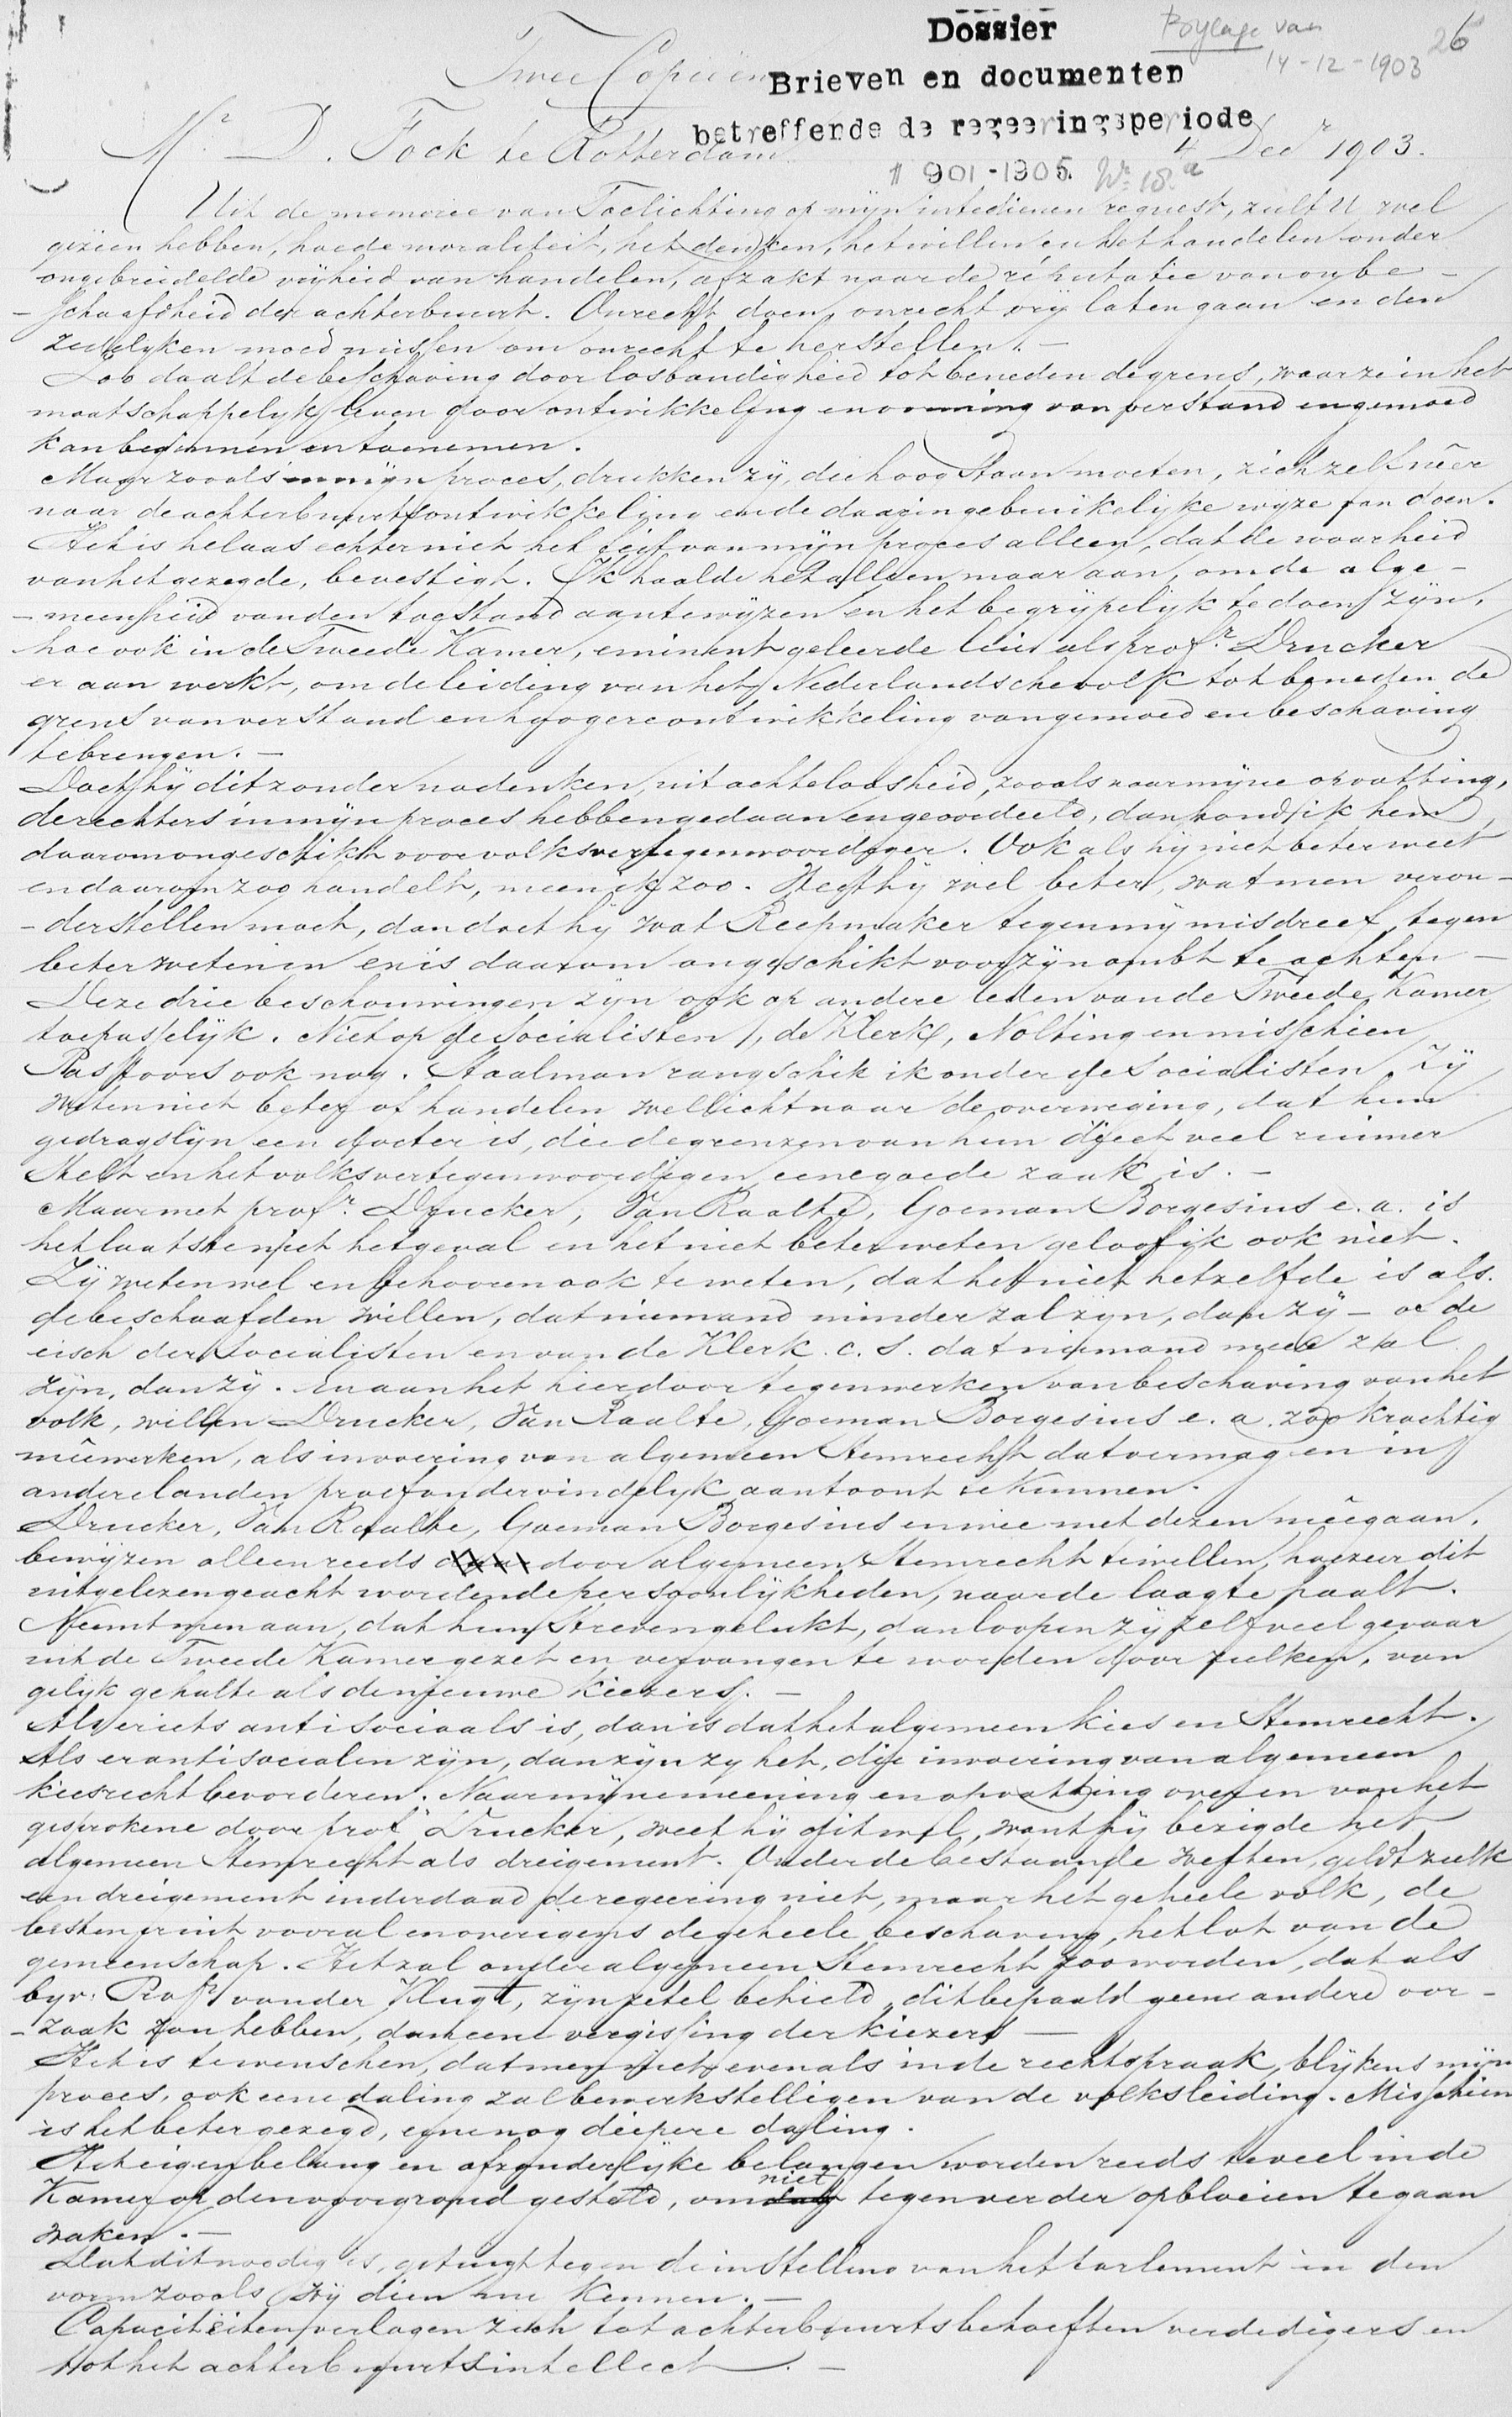 Dossier
Bÿlage van
14-12-1903
26
Twee Copieën
Brieven en documenten
betreffende de regeeringsperiode
1901-1905. No. 18.a
Mr. D. Fock te Rotterdam 4 Decr 1903.
Uit de memorie van Toelichting op mijn intedienen request, zult U wel
gezien hebben, hoe de moraliteit, het denken, het willen en het handelen onder
ongebreidelde vrijheid van handelen, afzakt naar de réputatie van onbe-
-schaafdheid der achterbuurt. Onrecht doen, onrecht vrij laten gaan en den
zedelyken moed missen om onrecht te herstellen. -
Zoo daalt de beschaving door losbandigheid tot beneden de grens, waar ze in het
maatschappelyk leven door ontwikkeling en vorming van verstand en gemoed
kan beginnen en toenemen.
Maar zooals in mijn proces, drukken zij, die hoog staan moeten, zich zelf nêer
naar de achterbuurtsontwikkeling en de daarin gebruikelijke wijze van doen.
Het is helaas echter niet het feit van mijn proces alleen, dat de waarheid
van het gezegde, bevestigt. Ik haalde het alleen maar aan, om de alge-
-meenheid van den toestand aantewijzen en het begrijpelijk te doen zijn,
hoe ook in de Tweede Kamer, eminent geleerde lui als profr. Drucker
er aan werkt, om de leiding van het Nederlandsche volk tot beneden de
grens van verstand en hoogere ontwikkeling van gemoed en beschaving
te brengen. -
Doet hij dit zonder nadenken, uit achteloosheid, zooals naar mijne opvatting,
de rechters in mijn proces hebben gedaan en geoordeeld, dan houd ik hem
daarom ongeschikt voor volksvertegenwoordiger. Ook als hij niet beter weet
en daarom zoo handelt, meen ik zoo. Weet hij wel beter, wat men veron-
-derstellen moet, dan doet hij wat Reepmaker tegen mij misdreef, tegen
beter weten in en is daarom ongeschikt voor zijn ambt te achten -
Deze drie beschouwingen zijn ook op andere leden van de Tweede Kamer
toepasselijk. Niet op de socialisten, de Klerk, Nolting en misschien
Pastoors ook nog. Staalman rangschik ik onder de socialisten Zij
weten niet beter of handelen wellicht naar de overweging, dat hun
gedragslijn een factor is, die de grenzen van hun dieet veel ruimer
stelt en het volksvertegenwoordigen eene goede zaak is. -
Maar met profr. Drucker, Van Raalte, Goeman Borgesius e. a. is
het laatste niet het geval en het niet beter weten geloof ik ook niet.
Zij weten wel en behooren ook te weten, dat het niet hetzelfde is als
de beschaafden willen, dat niemand minder zal zijn, dan zij - of de
eisch der socialisten en van de Klerk c. s. dat niemand meer zal
zijn, dan zij. En aan het hierdoor tegenwerken van beschaving van het
volk, willen Drucker, Van Raalte, Goeman Borgesius e. a. zoo krachtig
mêewerken, als invoering van algemeen stemrecht dat vermag en in
andere landen proefondervindelyk aantoont te kunnen.
Drucker, Van Raalte, Goeman Borgesius en wie met dezen mêegaan,
bewijzen alleen reeds door algemeen stemrecht te willen, hoezeer dit
uitgelezen geacht wordende persoonlijkheden, naar de laagte haalt.
Neemt men aan, dat hun streven gelukt, dan loopen zij zelf veel gevaar
uit de Tweede Kamer gezet en vervangen te worden door zulken, van
gelijk gehalte als de nieuwe kiezers. -
Als er iets antisociaals is, dan is dat het algemeen kies en stemrecht.
Als er antisocialen zijn, dan zijn zy het, die invoering van algemeen
kiesrecht bevorderen. Naar mijne meening en opvatting over en van het
gesprokene door profr Drucker, weet hij dit wel, want hij bezigde het
algemeen stemrecht als dreigement. Onder de bestaande wetten, geldt zulk
een dreigement inderdaad de regeering niet, maar het geheele volk, de
besten er uit vooral en overigens de geheele beschaving, het lot van de
gemeenschap. Het zal onder algemeen stemrecht zoo worden, dat als
byv. Profr van der Vlugt, zijn zetel behield, dit bepaald geene andere oor-
-zaak zou hebben, dan eene vergissing der kiezers -
Het is te wenschen, dat men niet evenals in de rechtspraak, blijkens mijn
proces, ook eene daling zal bewerkstelligen van de volksleiding. Misschien
is het beter gezegd, eene nog diepere daling.
Het eigenbelang en afzonderlijke belangen worden reeds te veel in de
Kamer op den voorgrond gesteld, om niet tegen verder opbloeien te gaan
waken. -
Dat dit noodig is, getuigt tegen de instelling van het Parlement in den
vorm zooals wij dien nu kennen. -
Capaciteiten verlagen zich tot achterbuurtsbehoeften verdedigers en
tot het achterbuurtsintellect. -